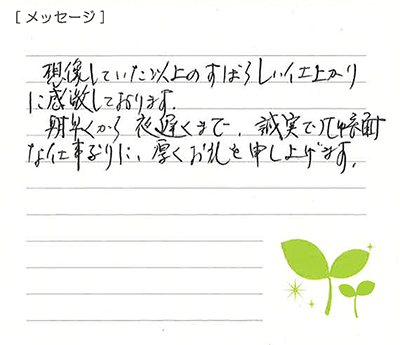 [メッセージ]
想像していた以上のすばらしい仕上がり
に感激しております。
朝早くから夜遅くまで、誠実で几帳面
な仕事ぶりに、厚くお礼を申し上げます。